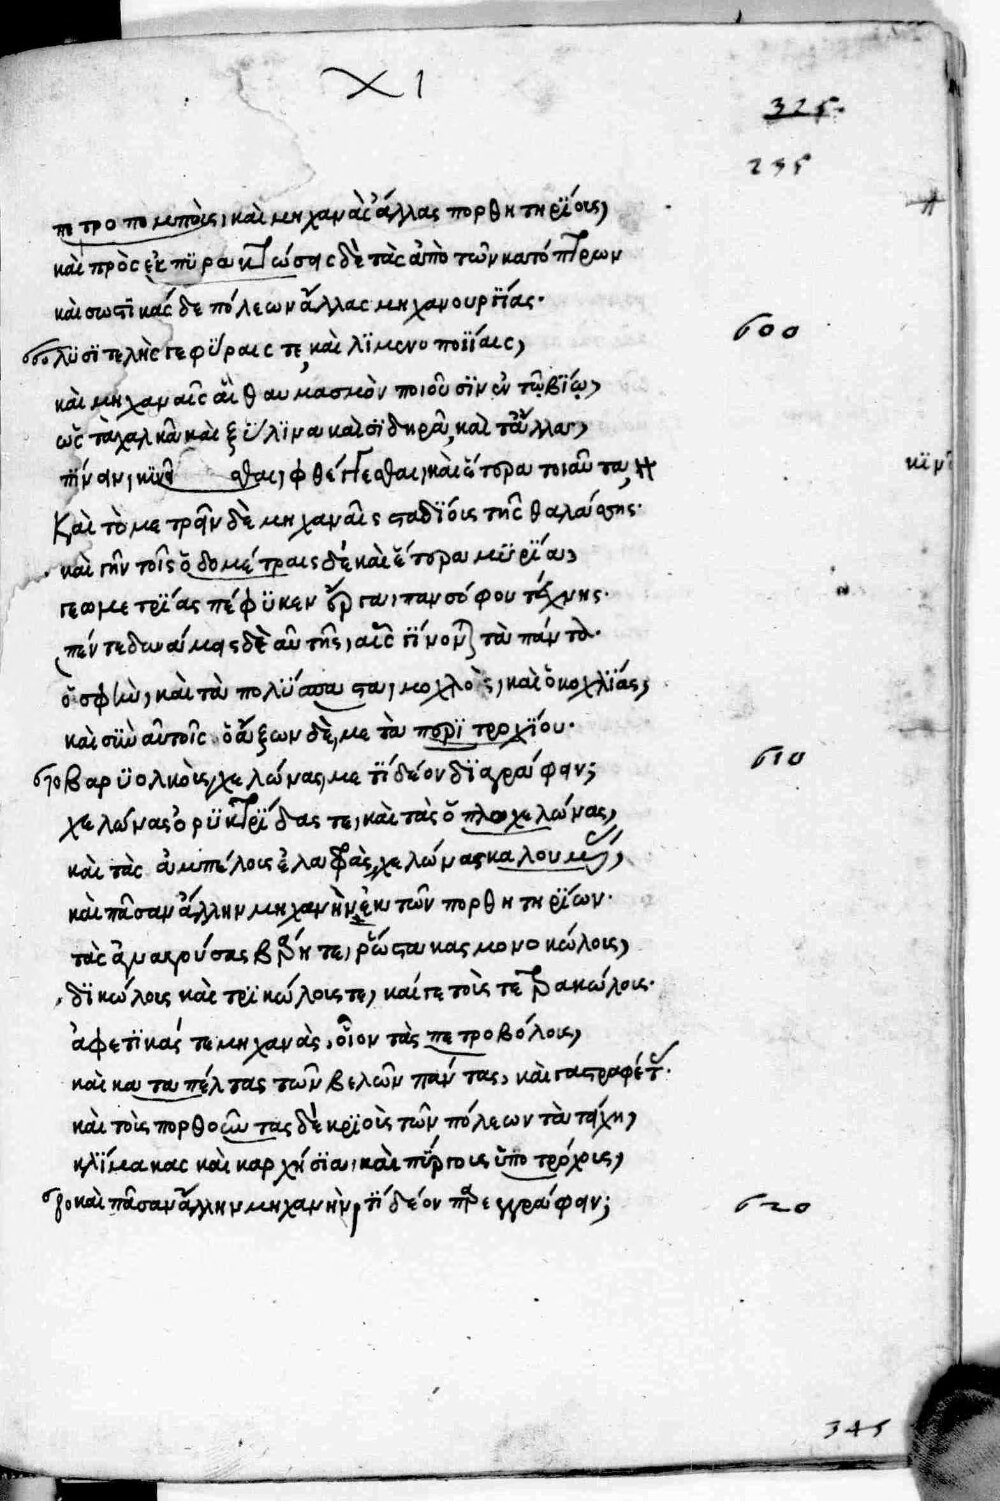 XI
325
235
πετροπομποῖς, καὶ μηχαναῖς ἄλλας πορθητηρίοις,
καὶ πρὸς ἐκπυρακτώσεις δὲ τὰς ἀπὸ τῶν κατόπτρων
καὶ σωστικάς δε πόλεων ἄλλας μηχανουργίας.
600
λυσιτελὴς γεφύραις τε, καὶ λιμενοποιίαις,
καὶ μηχαναῖς αἳ θαυμασμὸν ποιοῦσιν ἐν τῷ βίῳ,
ὡς τὰ χαλκᾶ καὶ ξύλινα καὶ σιδηρᾶ, καὶ τἄλλα,
πίνειν, κινεῖ σθαι, φθέγγεσθαι, καὶ ἕτερα τοιαῦτα,
Καὶ τὸ μετρεῖν δὲ μηχαναῖς σταδίοις τῆς θαλάσσης.
καὶ γῆν τοῖς ὁδομέτραις δέ καὶ ἕτερα μυρία,
γεωμετρίας πέφυκεν ἔργα, πανσόφου τέχνης.
πέντε δυνάμεις δὲ αὐτῆς, αἷς γίνονται τὰ πάντα.
ὁ σφὴν, καὶ τὰ πολύσπαστα, μοχλὸς, καὶ ὁ κοχλίας,
καὶ σὺν αὐτοῖς ὁ ἄξων δὲ, μετὰ περιτροχίου.
610
βαρυολκοῖς, χελώνας, με τί δέον διαγράφειν;
χελώνας ὀρυκτρίδας τε, καὶ τὰς ὁπλοχελώνας,
καὶ τὰς ἀμπέλοις ἐλαφρὰς, χελώνας καλουμένας,
καὶ πᾶσαν ἄλλην μηχανὴν ἐκ τῶν πορθητηρίων.
τὰς ἁμαγρούσας βάρη τε, ῥώστακας μονοκώλοις,
δικώλοις καὶ τρικώλοις τε, καί γε τοῖς τετρακώλοις.
ἀφετικάς τε μηχανὰς, οἷον τὰς πετροβόλοις,
καὶ καταπέλτας τῶν βελῶν πάντας, καὶ γαστραφέτας.
καὶ τοῖς πορθοῦντας δὲ κριοῖς τῶν πόλεων τὰ τείχη,
κλίμακας καὶ καρχήσια, καὶ πύργοις ὑποτρόχοις,
620
καὶ πᾶσαν ἄλλην μηχανὴν, τί δέον παρεγγράφειν;
345